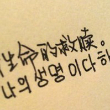 生命的救贖。
나의 생명 이다하